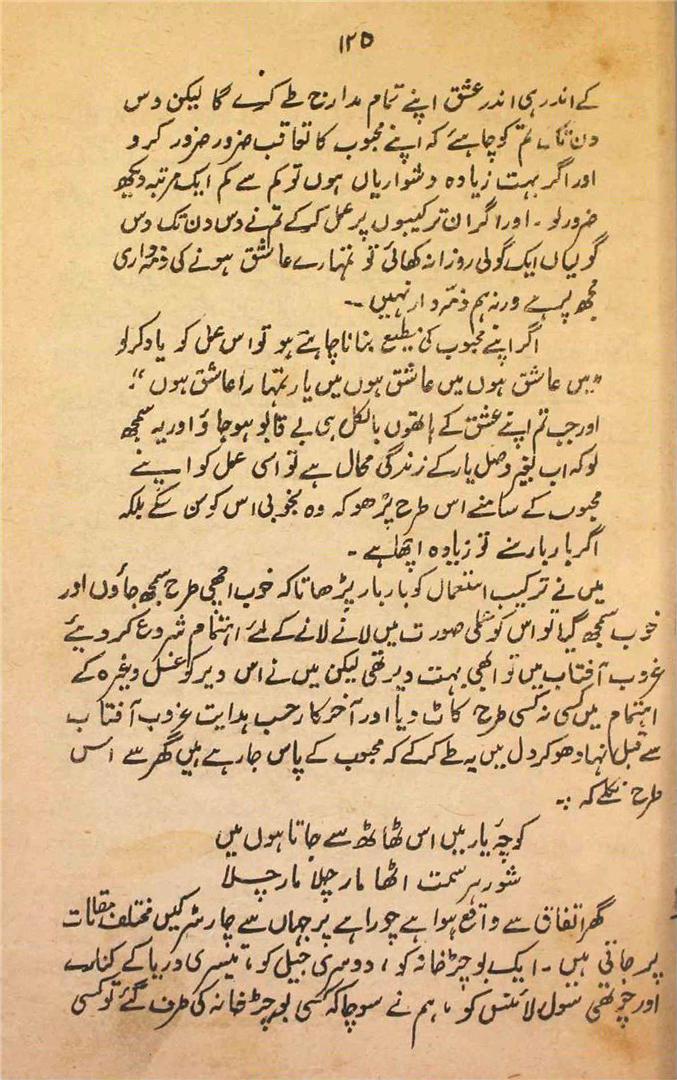 ۱۲۵
کے اندر ہی اندر عشق اپنے تمام مدارج طے کرے گا لیکن دس
دن تک تم کو چاہئے کہ اپنے محبوب کا تعاقب ضرور ضرور کرو
اور اگر بہت زیادہ دشواریاں ہوں تو کم سے کم ایک مرتبہ دیکھ
ضرور لو ۔ اور اگر ان ترکیبوں پر عمل کر کے تم نے دس دن تک دس
گولیاں ایک گولی روزانہ کھائی تو تمہارے عاشق ہونے کی ذمہ داری
مجھ پر ہے ورنہ ہم ذمہ دار نہیں ۔۔
اگر اپنے محبوب کی مطیع بنانا چاہتے ہو تو اس عمل کو یاد کر لو
”میں عاشق ہوں میں عاشق ہوں میں یار تمہارا عاشق ہوں“۔
اور جب تم اپنے عشق کے ہاتھوں بالکل ہی بے قابو ہو جاؤ اور یہ سمجھ
لو کہ اب بغیر وصل یار کے زندگی محال ہے تو اسی عمل کو اپنے
محبوب کے سامنے اس طرح پڑھو کہ وہ بخوبی اس کو سن سکے بلکہ
اگر بار بار سنے تو زیادہ اچھا ہے ۔
میں نے ترکیب استعمال کو بار بار پڑھا تاکہ خوب اچھی طرح سمجھ جاؤں اور
خوب سمجھ گیا تو اس کو عملی صورت میں لانے لانے کے لئے اہتمام شروع کر دیئے
غروب آفتاب میں تو ابھی بہت دیر تھی لیکن میں نے اس دیر کو غسل وغیرہ کے
اہتمام میں کسی نہ کسی طرح کاٹ دیا اور آخر کار حسب ہدایت غروب آفتاب
سے قبل نہا دھو کر دل میں یہ طے کر کے کہ محبوب کے پاس جا رہے ہیں گھر سے اس
طرح نکلے کہ :۔
کوچۂ یار میں اس ٹھاٹھ سے جاتا ہوں میں
شور ہر سمت اٹھا مار چلا مار چلا
گھر اتفاق سے واقع ہوا ہے چوراہے پر جہاں سے چار سڑکیں مختلف مقامات
پر جاتی ہیں ۔ ایک بوچڑ خانہ کو ، دوسری جیل کو ، تیسری دریا کے کنارے
اور چوتھی سول لائنس کو ، ہم نے سوچا کہ کسی بوچڑ خانہ کی طرف گئے تو کسی